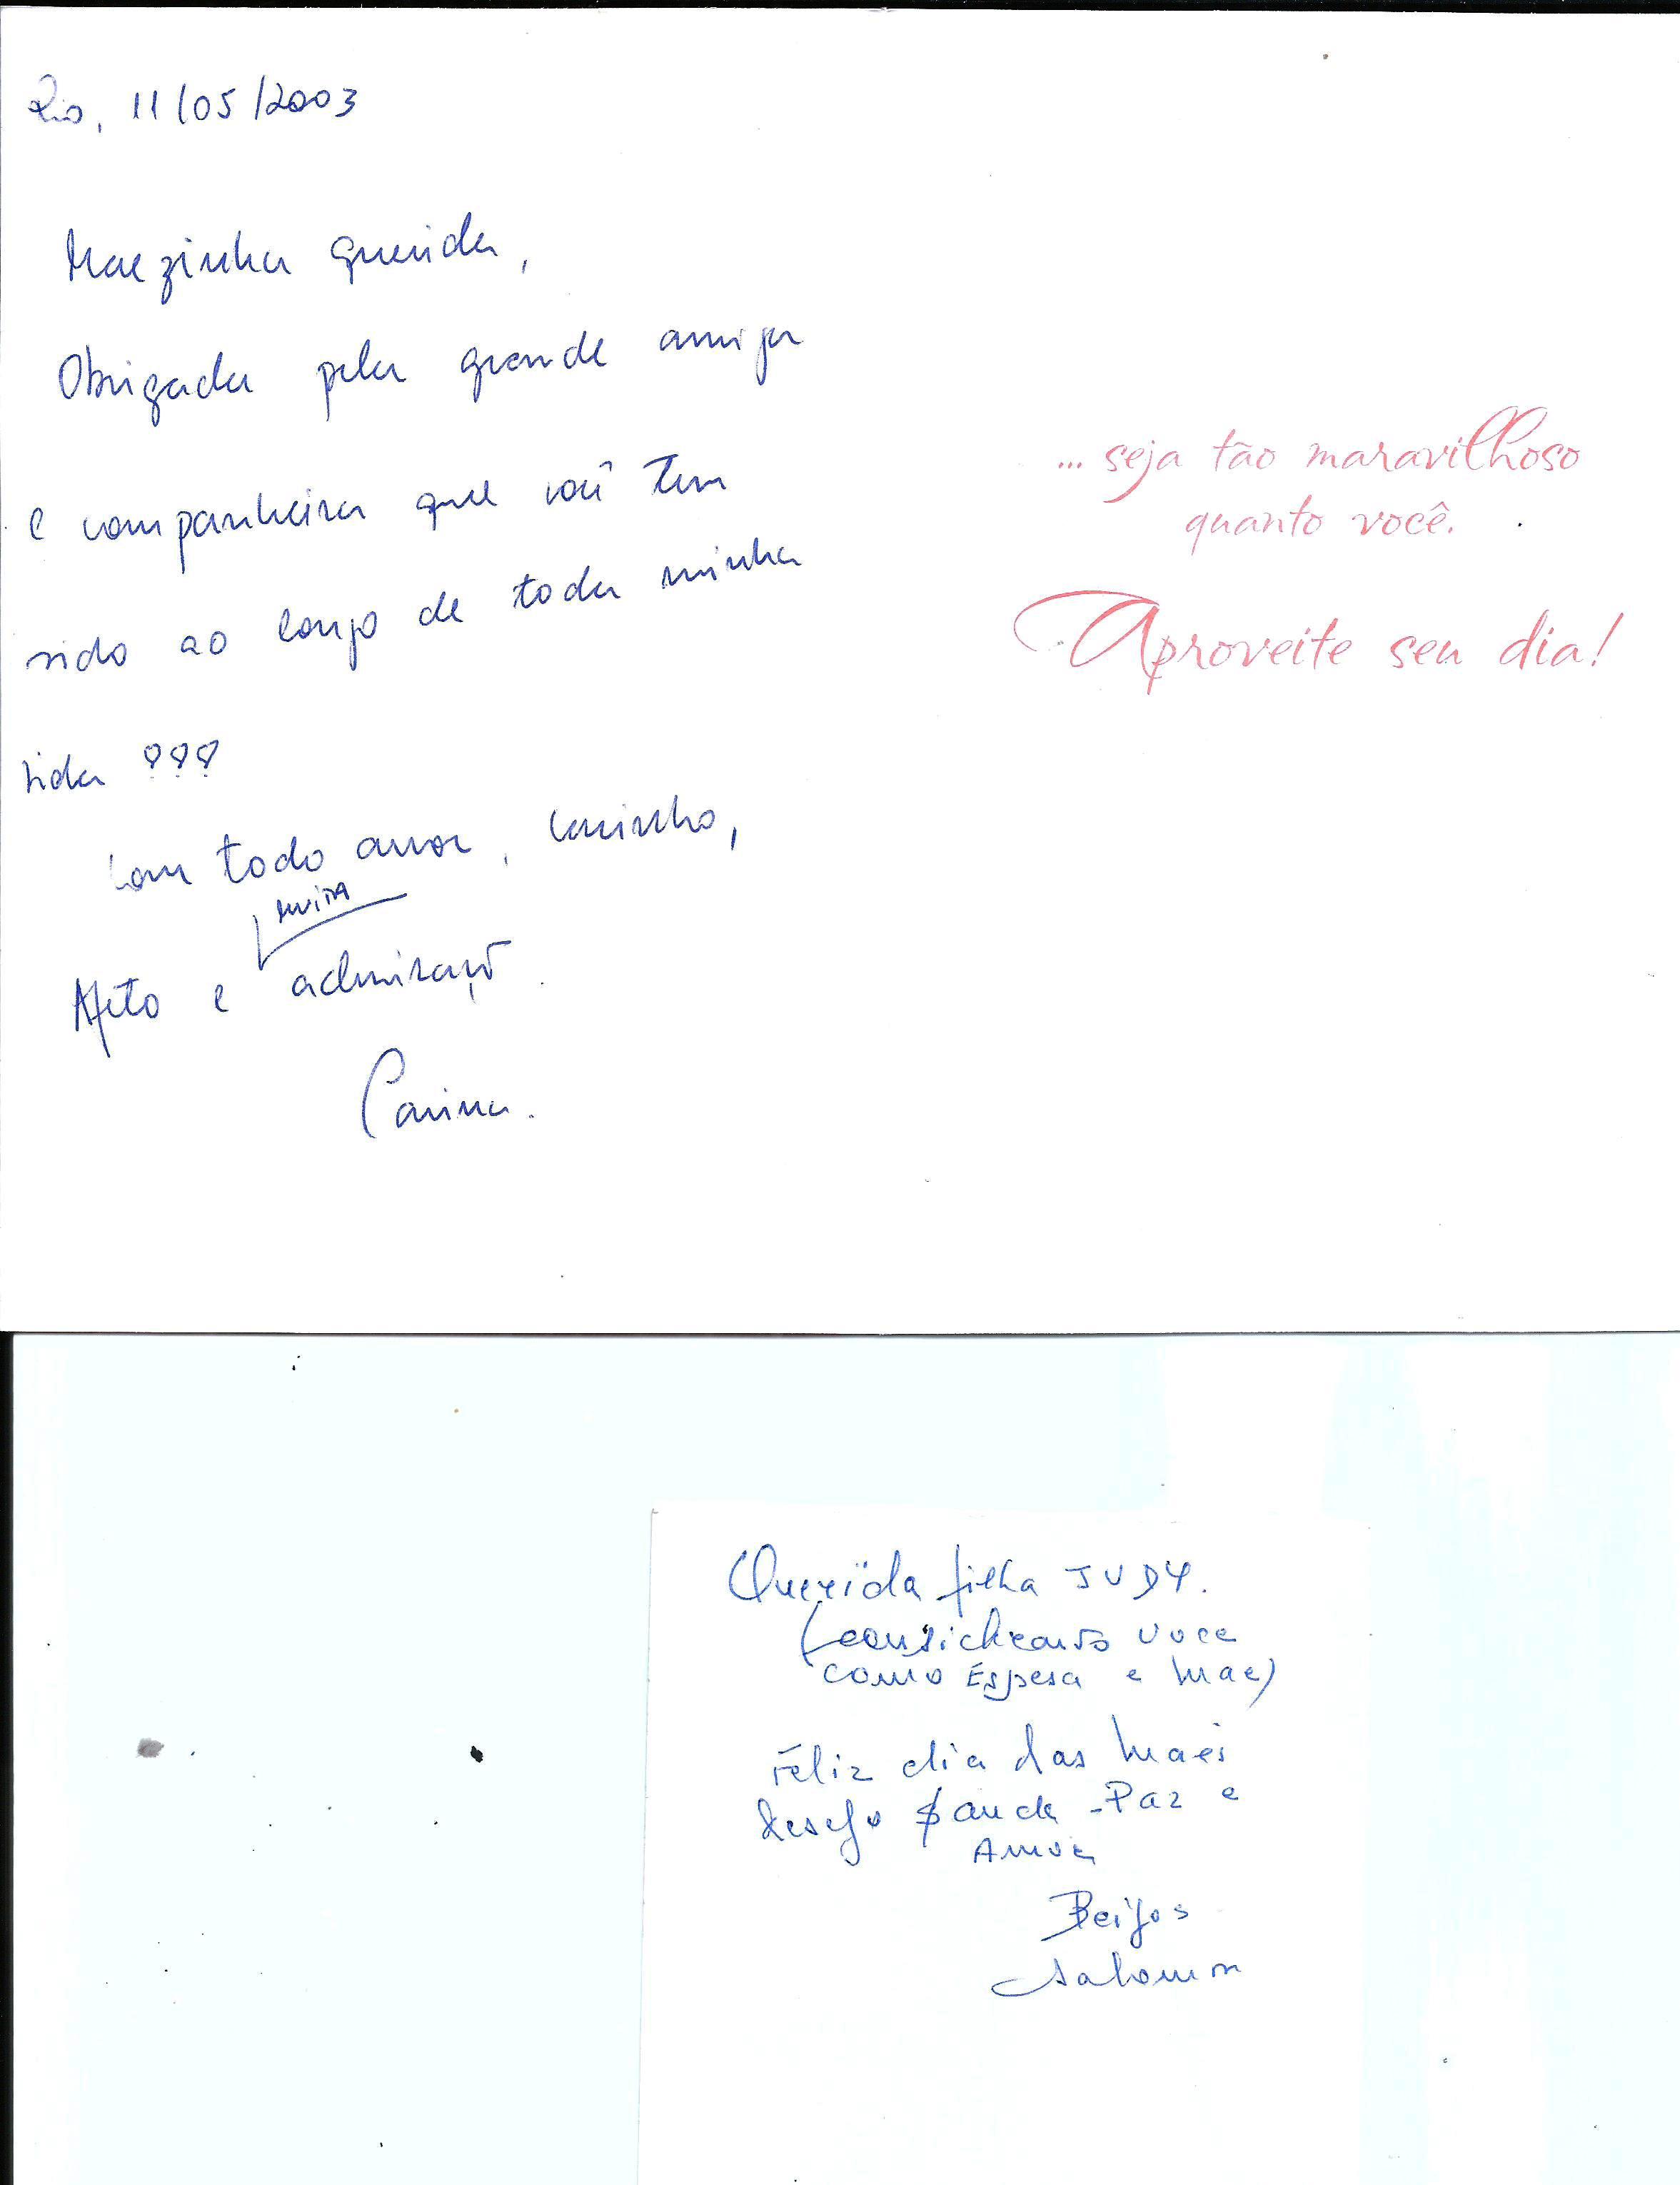 Rio, 11/05/2003
Maezinha querida,
Obrigada pela grande amiga
e companheira que você tem
sido ao longo de toda minha
vida !!!
Com todo amor, carinho,
muita
Afeto e admiração.
Carina.
... seja tão maravilhoso
quanto você.
Aproveite seu dia!
Querida filha JUDY.
(considerando voce
como Esposa e mae)
Feliz dia das maes
desejo saude - Paz e
Amor
Beijos
Salomon